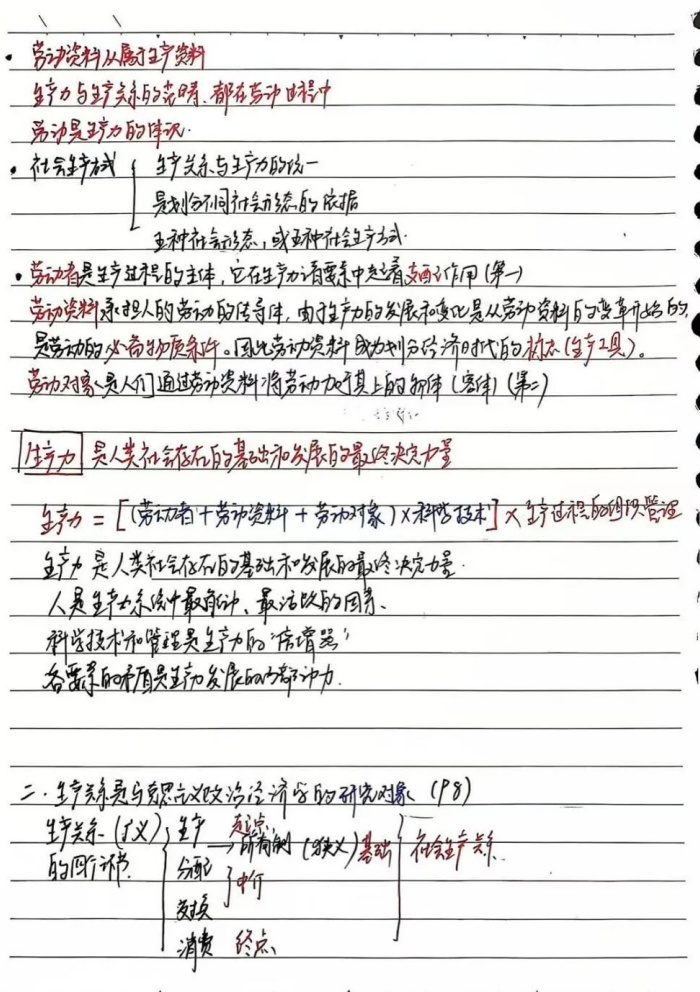 • 劳动资料从属于生产资料
生产力与生产关系的范畴、都在劳动过程中
劳动是生产力的体现.
• 社会生产方式 { 生产关系与生产力的统一
是划分不同社会形态的依据
五种社会形态,或五种社会生产方式.
• 劳动者是生产过程的主体,它在生产力诸要素中起着支配作用(第一)
劳动资料承担人的劳动的传导体,由于生产力的发展和变化是从劳动资料的变革开始的,
是劳动的必需物质条件。因此劳动资料成为划分经济时代的标志(生产工具)。
劳动对象是人们通过劳动资料将劳动加于其上的物体(客体)(第二)
生产力 是人类社会存在的基础和发展的最终决定力量
生产力=[(劳动者+劳动资料+劳动对象)×科学技术]×生产过程的组织管理
生产力是人类社会存在的基础和发展的最终决定力量.
人是生产力系统中最能动、最活跃的因素、
科学技术和管理是生产力的“倍增器”
各要素的矛盾是生产力发展的内部动力.
二.生产关系是马克思主义政治经济学的研究对象(P8)
生产关系(广义) { 生产 起点 → 所有制(狭义)基础 } 社会生产关系.
的四个环节. 分配 } 中介
交换
消费 终点